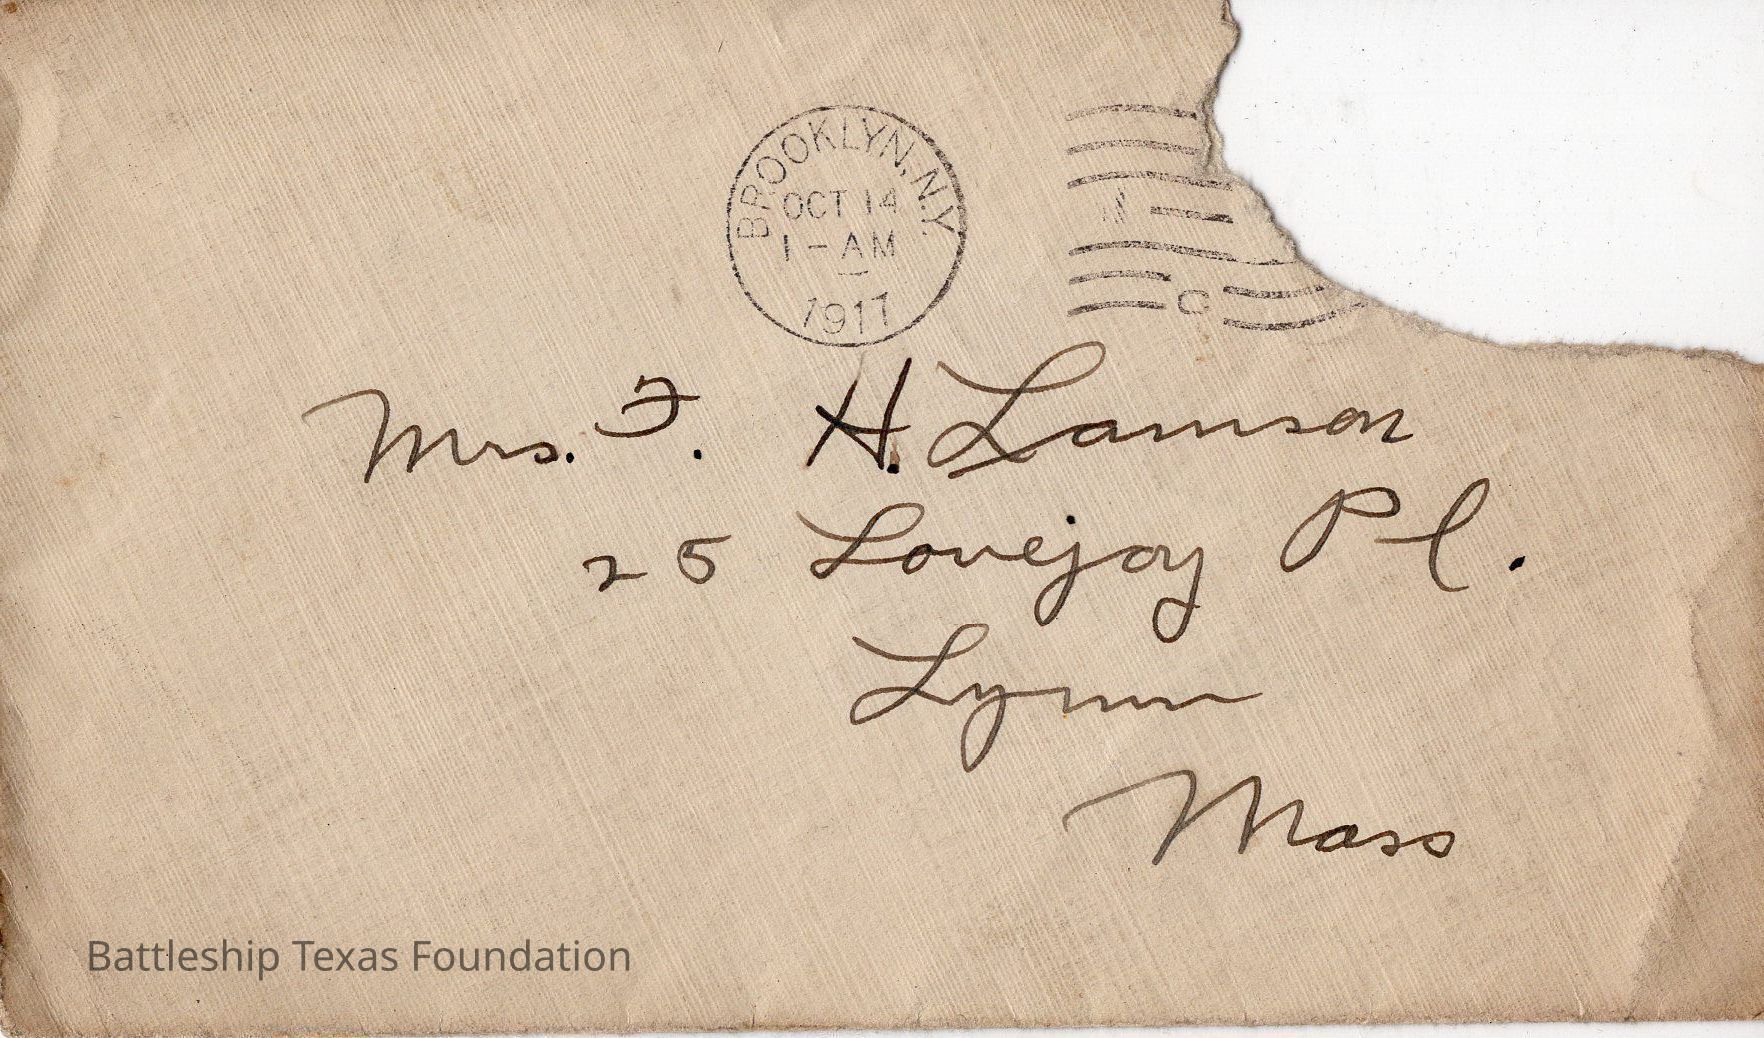 BROOKLYN, N.Y.
OCT 14
1 - AM
1917
Mrs. F. H. Lamson
25 Lovejoy Pl.
Lynn
Mass
Battleship Texas Foundation